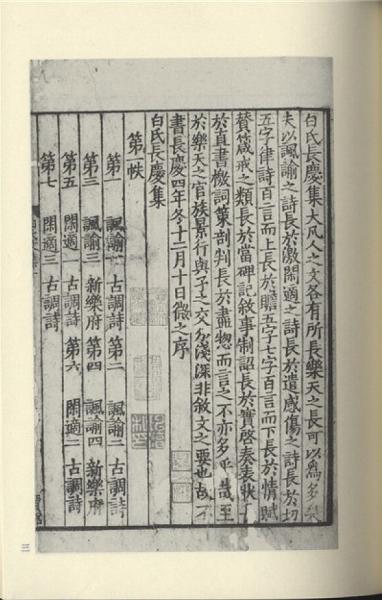 白氏長慶集大凡人之文各有所長樂天之長可以爲多矣
夫以諷諭之詩長於激閑適之詩長於遣感傷之詩長於切
五字律詩百言而上長於贍五字七字百言而下長於情賦
贊箴戒之類長於當碑記敘事制詔長於實啓奏表狀
於直書檄詞策剖判長於盡惣而言之不亦多乎哉至
於樂天之官族景行與予之交分淺深非敘文之要也故不
書長慶四年冬十二月十日微之序
白氏長慶集
第一帙
第一 諷諭一 古調詩 第二 諷諭二 古調詩
第三 諷諭三 新樂府 第四 諷諭四 新樂府
第五 閑適一 古調詩 第六 閑適二 古調詩
第七 閑適三 古調詩
三